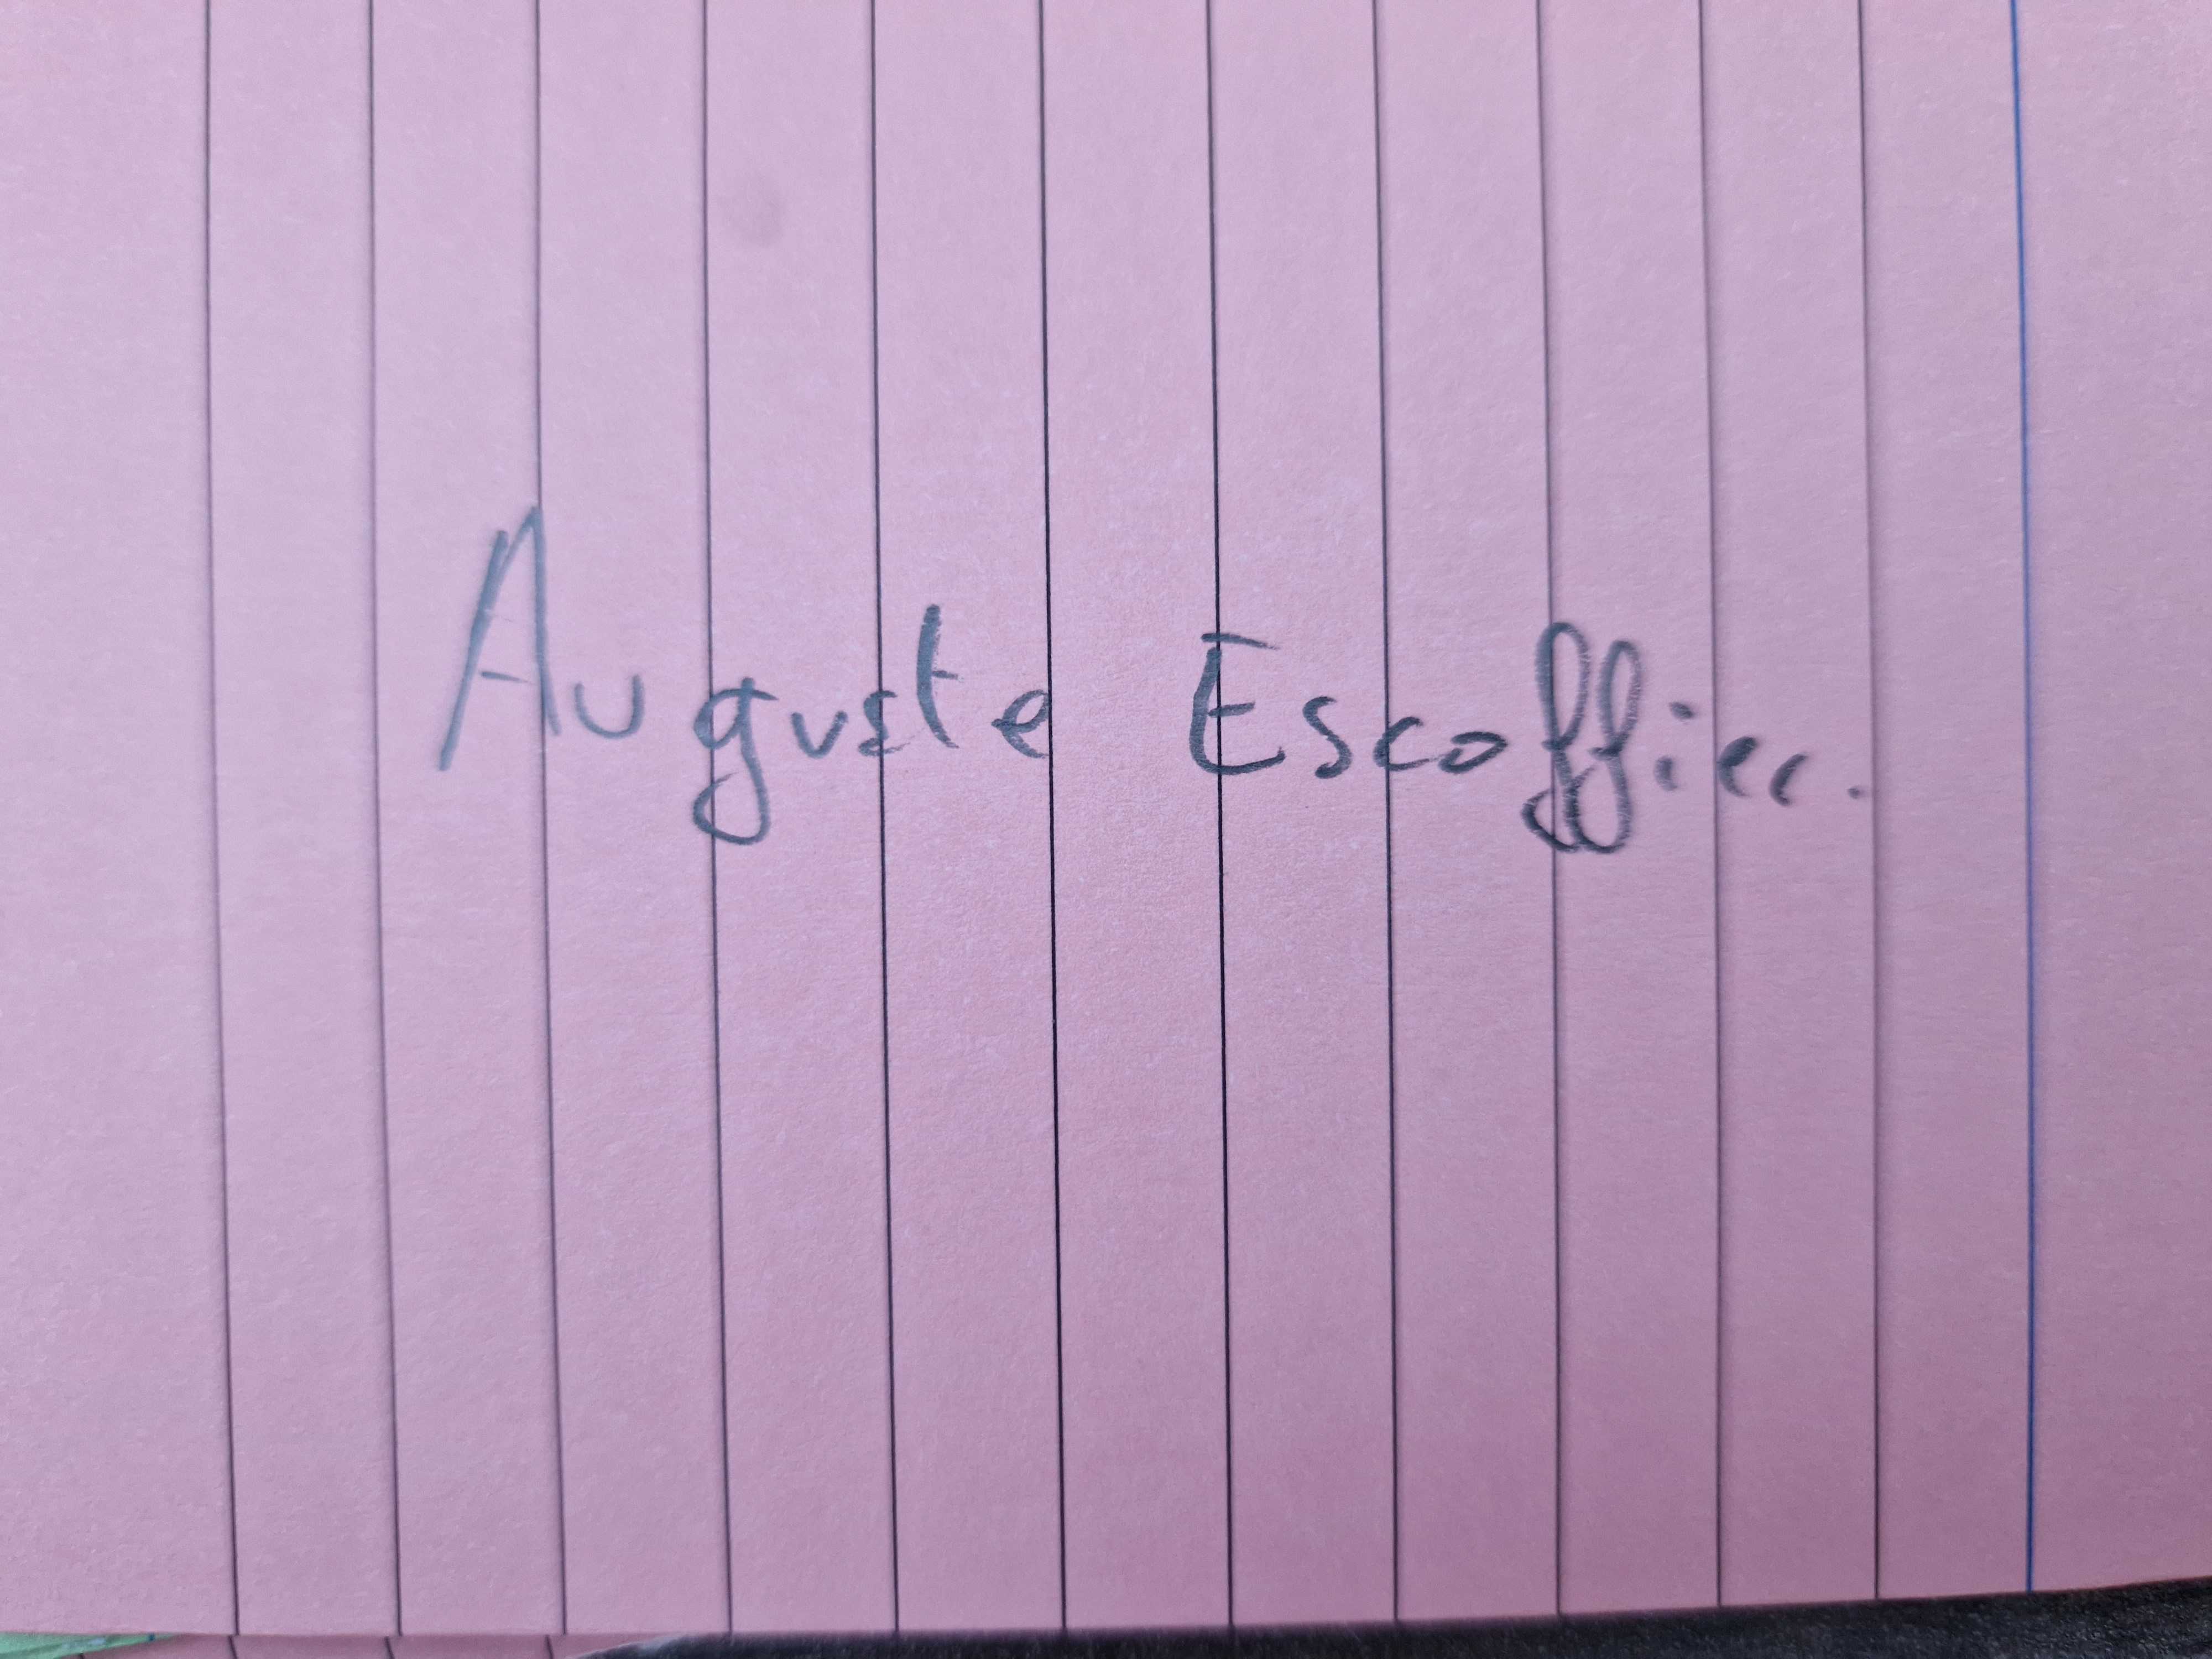 Auguste Escoffier.